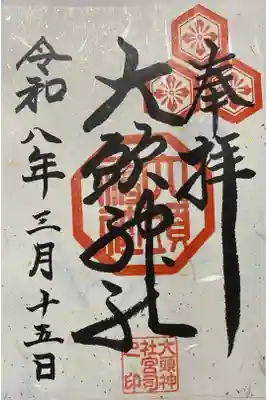 奉拝
大頭神社
令和八年三月十五日
大頭神社
大頭神
社宮司
之印